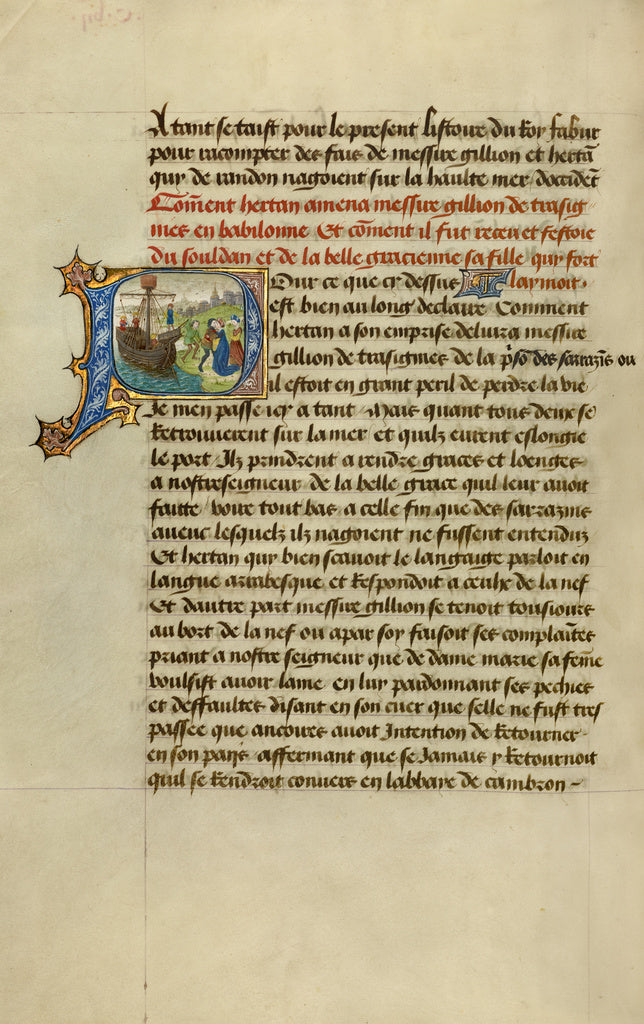 A tant se taist pour le present listoire du Roy fabur
pour racompter des fais de messire gillion et hertã
quy de randon nagoient sur la haulte mer doccidẽt
Com̃ent hertan amena messire gillion de trasig
nies en babilonne Et com̃ent il fut receu et festoie
du souldan et de la belle gracienne sa fille quy fort
Pour ce que cy dessus laymoit.
est bien au long declaire Comment
hertan a son emprise delivra messire
gillion de trasignies de la p̃so des sarrazĩs ou
il estoit en grant peril de perdre la vie
Je men passe icy a tant Mais quant tous deux se
Retrouverent sur la mer et quilz eurent eslongie
le port Ilz prindrent a rendre graces et loenges
a nostreseigneur de la belle grace quil leur avoit
faitte / voire tout bas a celle fin que des sarrazins
avenc lesquelz ilz nagoient ne fussent entenduz
Et hertan quy bien scavoit le langaige parloit en
langue arrabesque et Respondoit a ceulx de la nef
Et dautre part messire gillion se tenoit tousiours
au bort de la nef ou apar soy faisoit ses complaĩtes
priant a nostre seigneur que de dame marie sa fem̃e
voulsist avoir lame en luy pardonnant ses pechies
et deffaultes disant en son cuer que selle ne fust tres
passee que ancoires avoit Intention de Retourner
en son pays affermant que se Jamais y Retournoit
quil se Rendroit convers en labbaye de cambron ~